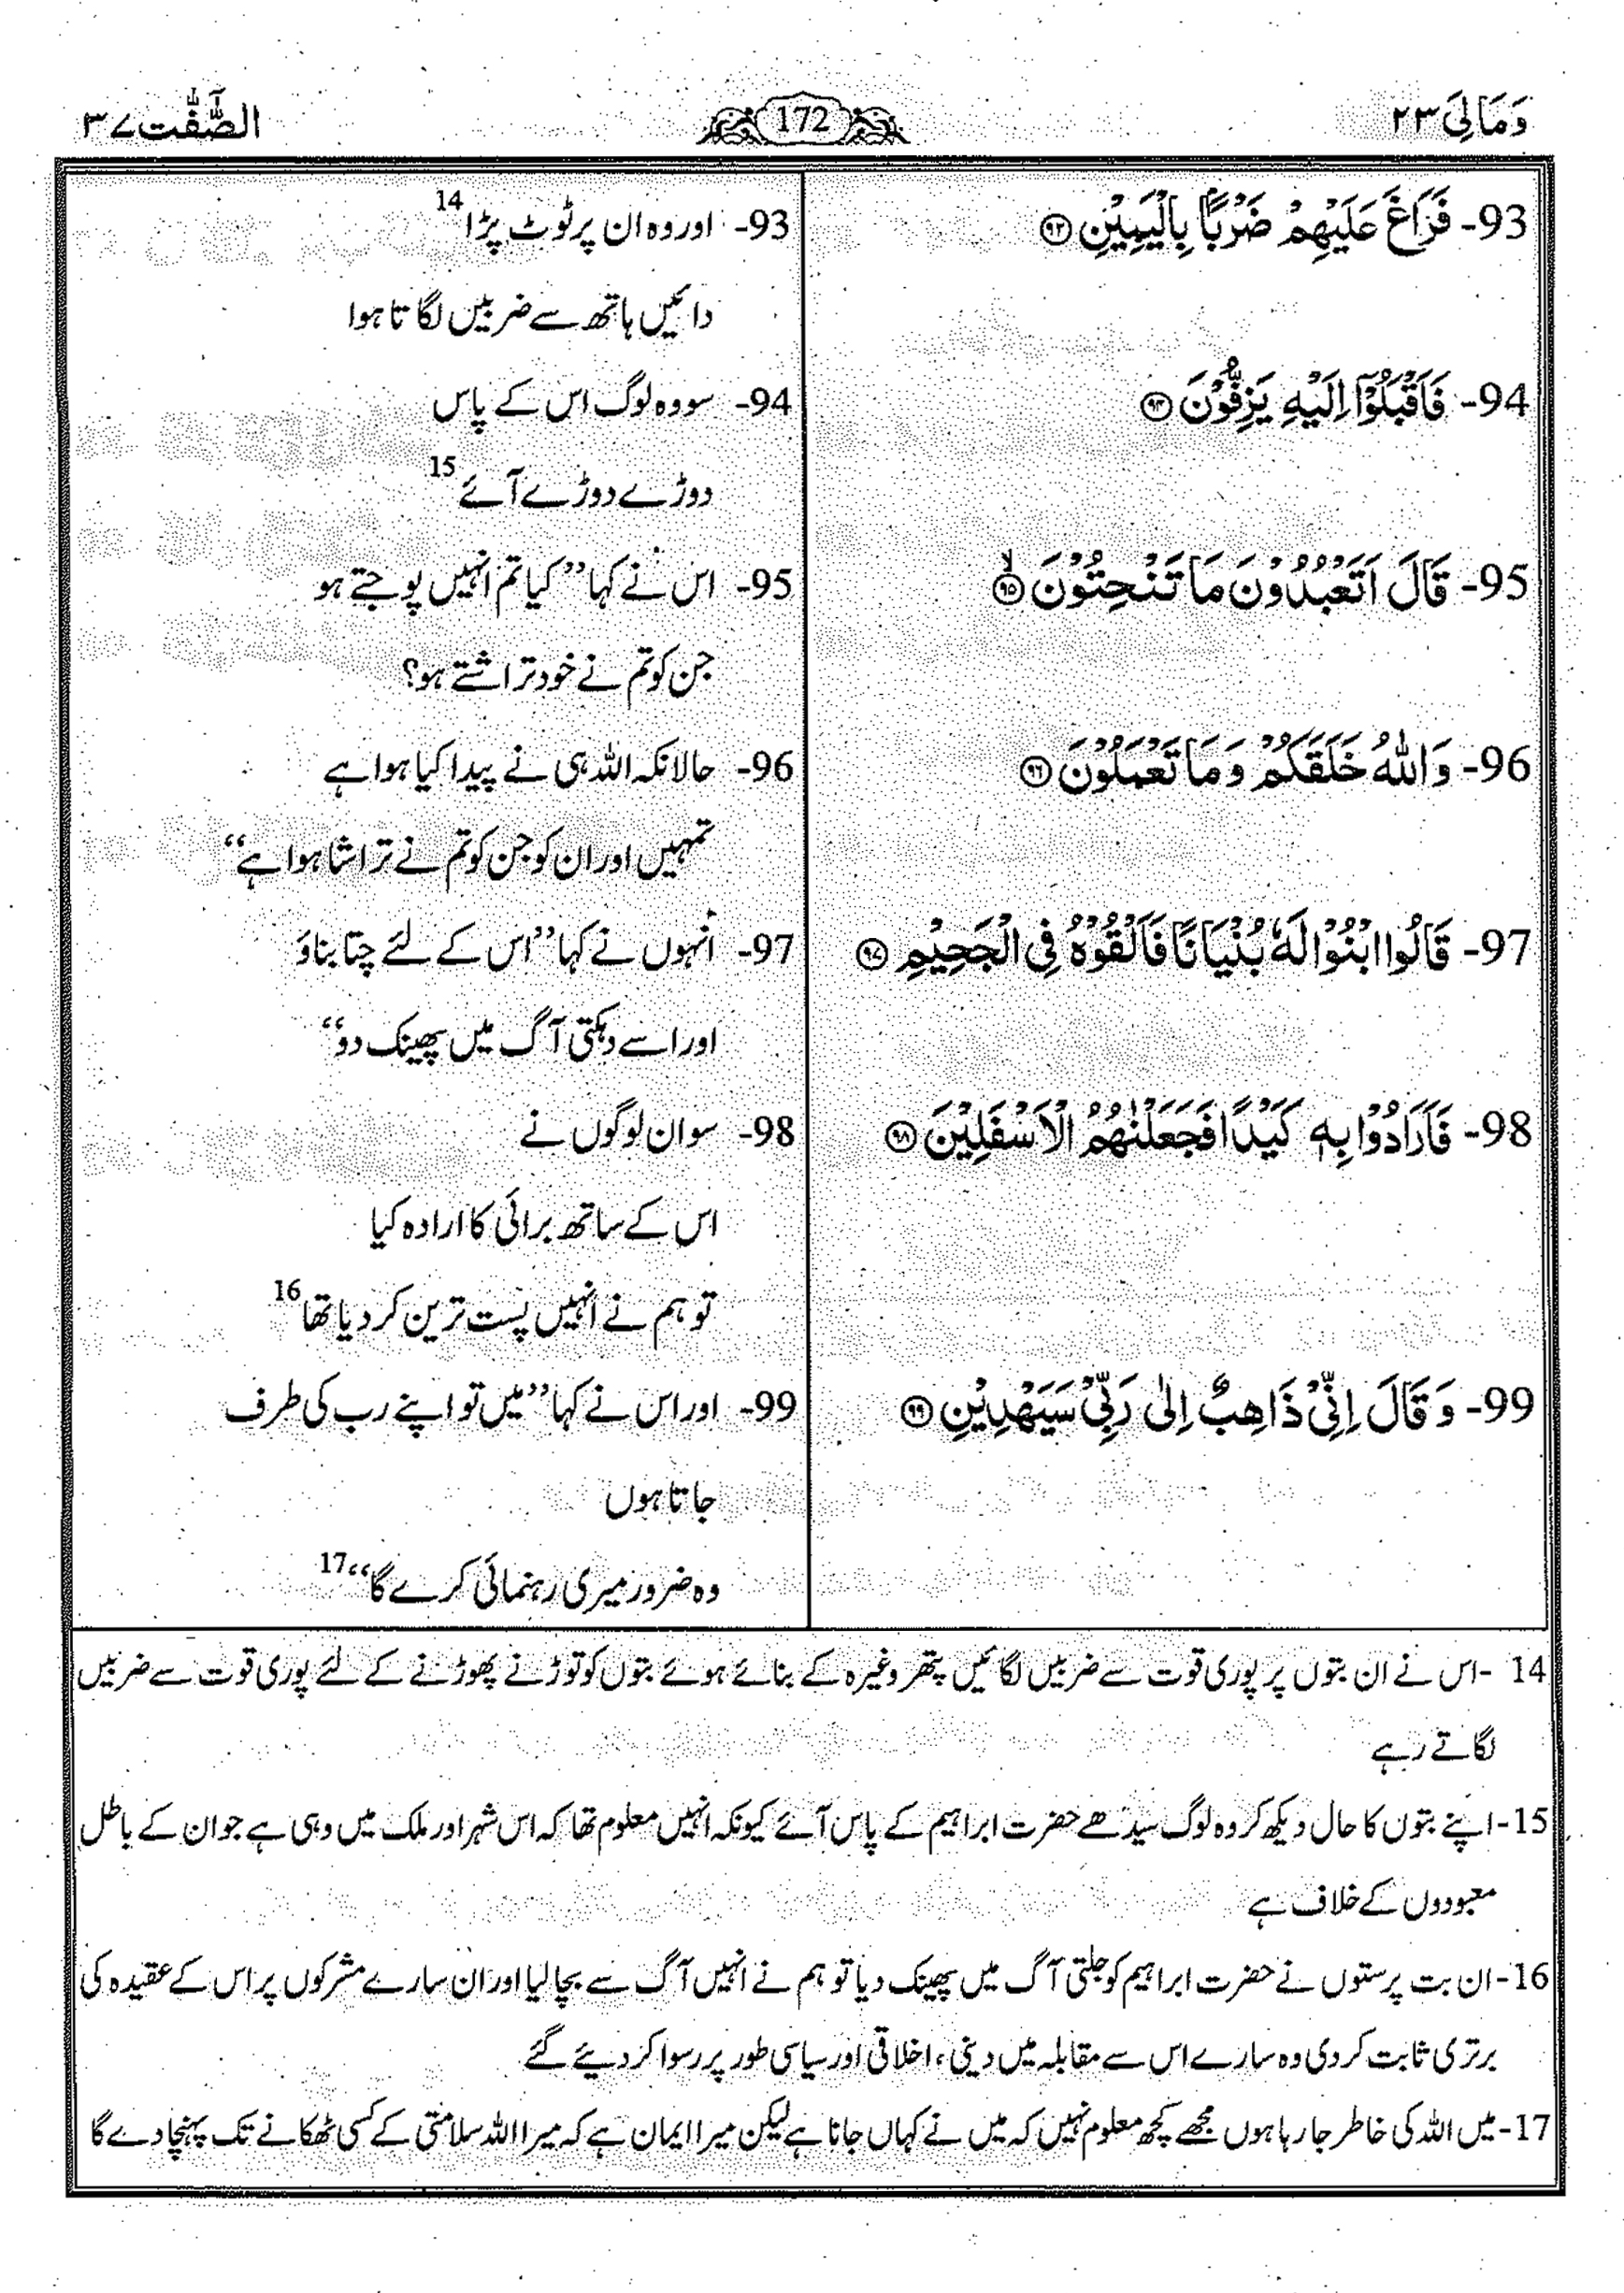 وَمَالِیَ ۲۳
172
الصّٰٓفّٰت ۳۷
93- فَرَاغَ عَلَيْهِمْ ضَرْبًۢا بِالْيَمِيْنِ ﴿۹۳﴾
94- فَاَقْبَلُوْٓا اِلَيْهِ يَزِفُّوْنَ ﴿۹۴﴾
95- قَالَ اَتَعْبُدُوْنَ مَا تَنْحِتُوْنَ ۙ﴿۹۵﴾
96- وَاللّٰهُ خَلَقَكُمْ وَ مَا تَعْمَلُوْنَ ﴿۹۶﴾
97- قَالُوا ابْنُوْا لَهٗ بُنْيَانًا فَاَلْقُوْهُ فِی الْجَحِيْمِ ﴿۹۷﴾
98- فَاَرَادُوْا بِهٖ كَيْدًا فَجَعَلْنٰهُمُ الْاَسْفَلِيْنَ ﴿۹۸﴾
99- وَ قَالَ اِنِّیْ ذَاهِبٌ اِلٰی رَبِّیْ سَيَهْدِيْنِ ﴿۹۹﴾
93- اور وہ ان پر ٹوٹ پڑا 14
دائیں ہاتھ سے ضربیں لگاتا ہوا
94- سو وہ لوگ اس کے پاس
دوڑے دوڑے آئے 15
95- اس نے کہا ”کیا تم انہیں پوجتے ہو
جن کو تم نے خود تراشتے ہو؟
96- حالانکہ اللہ ہی نے پیدا کیا ہوا ہے
تمہیں اور ان کو جن کو تم نے تراشا ہوا ہے“
97- اُنہوں نے کہا ”اس کے لئے چتا بناؤ
اور اسے دہکتی آگ میں پھینک دو“
98- سو ان لوگوں نے
اس کے ساتھ برائی کا ارادہ کیا
تو ہم نے انہیں پست ترین کر دیا تھا 16
99- اور اس نے کہا ”میں تو اپنے رب کی طرف
جاتا ہوں
وہ ضرور میری رہنمائی کرے گا“ 17
14 -اس نے ان بتوں پر پوری قوت سے ضربیں لگائیں پتھر وغیرہ کے بنائے ہوئے بتوں کو توڑنے پھوڑنے کے لئے پوری قوت سے ضربیں
لگاتے رہے
15-اپنے بتوں کا حال دیکھ کر وہ لوگ سیدھے حضرت ابراہیم کے پاس آئے کیونکہ انہیں معلوم تھا کہ اس شہر اور ملک میں وہی ہے جو ان کے باطل
معبودوں کے خلاف ہے
16-ان بت پرستوں نے حضرت ابراہیم کو جلتی آگ میں پھینک دیا تو ہم نے انہیں آگ سے بچا لیا اور ان سارے مشرکوں پر اس کے عقیدہ کی
برتری ثابت کر دی وہ سارے اس سے مقابلہ میں دینی، اخلاقی اور سیاسی طور پر رسوا کر دیئے گئے
17-میں اللہ کی خاطر جا رہا ہوں مجھے کچھ معلوم نہیں کہ میں نے کہاں جانا ہے لیکن میرا ایمان ہے کہ میرا اللہ سلامتی کے کسی ٹھکانے تک پہنچا دے گا